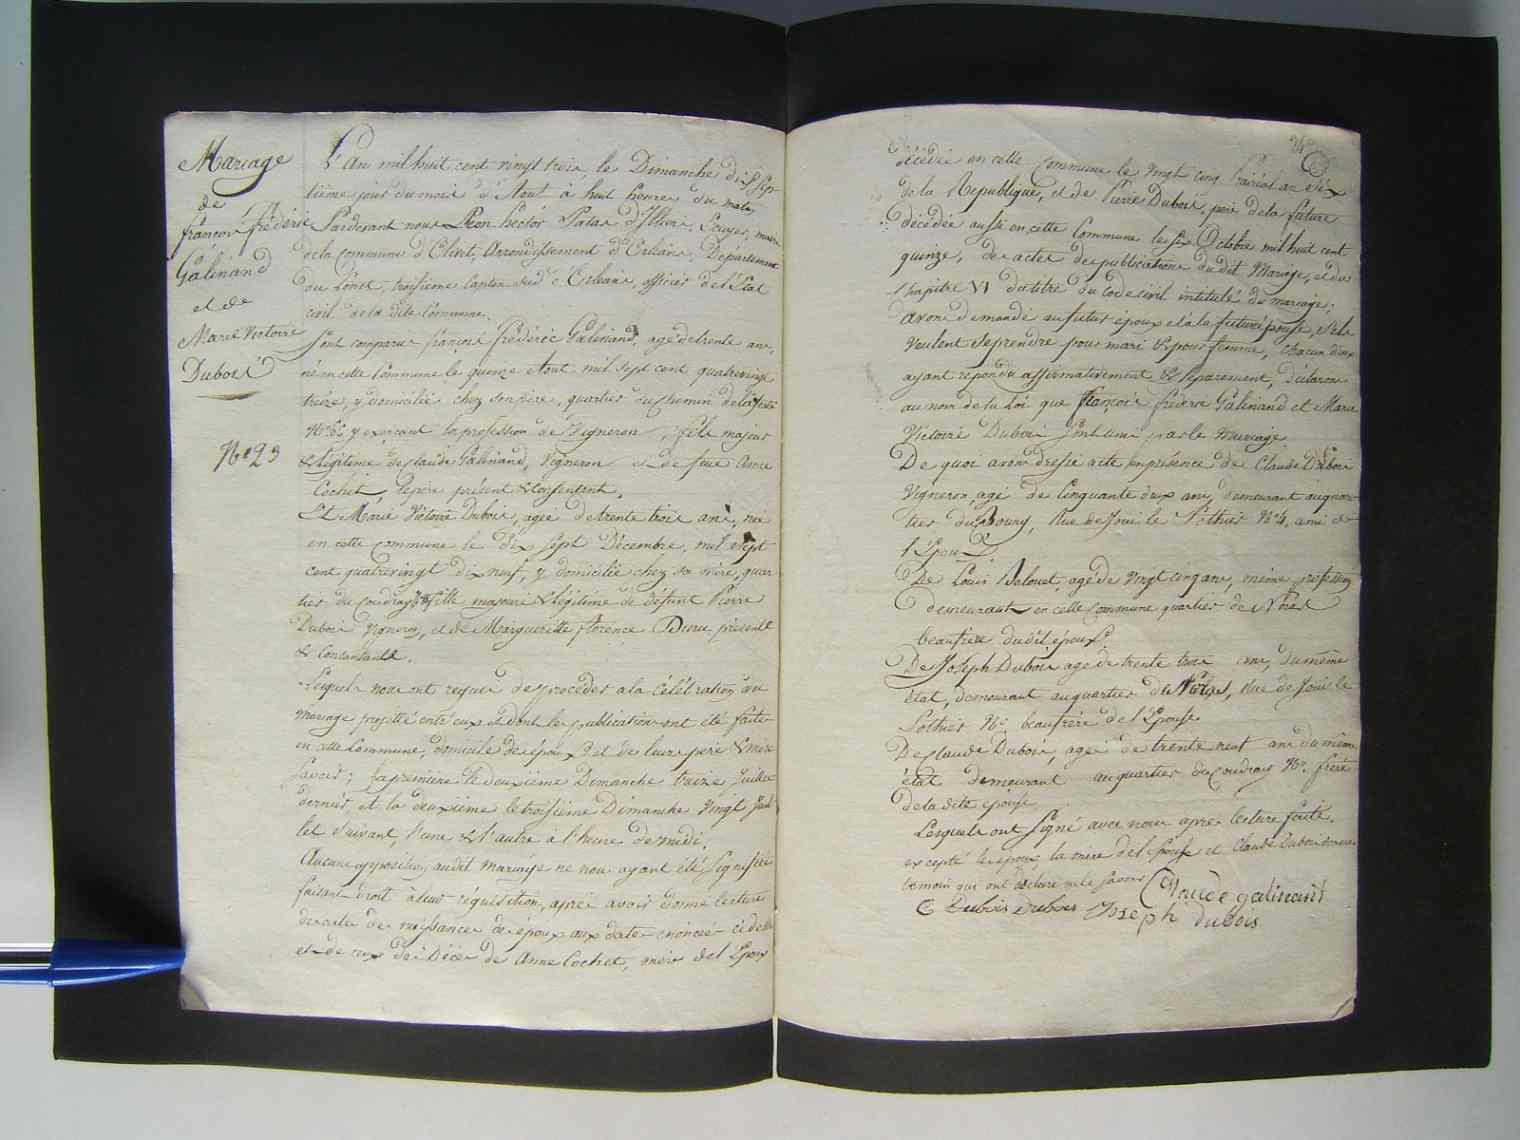 Mariage
de
françois frédéric
Galinand
et de
Marie Victoire
Dubois
N° 23
L'An mil huit cent vingt trois, le Dimanche dix sep-
tième jour du mois d'Aout à huit heures du matin
Pardevant nous Léon hector Patas d'Illiers, Ecuyer, maire
de la commune d'Olivet, Arrondissement d'Orléans, Département
du Loiret, troisième canton sud d'Orléans, officier de l'Etat
civil de la dite Commune.
Sont comparus françois frédéric Galinand, agé de trente ans,
né en cette Commune le quinze Aout mil sept cent quatrevingt
treize, y domicilié chez son père, quartier du Chemin de la
N° 66 y exerçant la profession de Vigneron, fils majeur
& légitime de Claude Galinand, Vigneron et de feue Anne
Cochet, le père présent & consentant.
Et Marie Victoire Dubois, agée de trente trois ans, née
en cette commune le dix sept Décembre, mil sept
cent quatrevingt dix neuf, y domicilié chez sa mère, quar
tier du Coudray fille majeure & légitime de défunt Pierre
Dubois Vigneron, et de Marguerite florence Duru présente
& Consentante.
Lesquels nous ont requis de procéder a la Célébration du
Mariage projetté entre eux et dont les publications ont été faites
en cette Commune, domicile des époux et de leurs père & mère
Savoir; la première le deuxième Dimanche treize Juillet
dernier, et la deuxième le troisième Dimanche Vingt Juil
let suivant, l'une & l'autre à l'heure de midi.
Aucune opposition audit mariage ne nous ayant été signifiée
faisant droit à leur réquisition, après avoir donné lecture
des actes de naissance des époux aux dates énoncées ci dessus
et de ceux de Décès de Anne Cochet, mère de l'Epoux
24
décédée en cette Commune le vingt cinq Prairial an Dix
de la République, et de Pierre Dubois, père de la future
décédée aussi en cette Commune le six Octobre mil huit cent
quinze, des actes de publications du dit Mariage, et du
Chapitre VI du titre du Code civil intitulé du mariage;
avons demandé au futur époux et à la future épouse, s'ils
veulent se prendre pour mari & pour femme, chacun d'eux
ayant répondu affirmativement & séparément, déclarons
au nom de la Loi que françois fréderic Galinand et Marie
Victoire Dubois sont unis par le mariage
De quoi avons dressé acte en présence de Claude Dubois
Vigneron, agé de Cinquante deux ans, demeurant au quar-
tier du Bourg, Rue de Joui le Pothier N° 4, ami de
l'Epoux
De Louis Belouet, agé de vingt cinq ans, même profession
demeurant en cette Commune quartier de Noras
beaufrère dudit époux
De Joseph Dubois agé de trente trois ans, du même
état, demeurant au quartier de Noras, Rue de Joui le
Pothier N° beaufrère de l'Epouse
De Claude Dubois, agé de trente neuf ans du même
état demeurant au quartier du Coudray N° frère
de la dite épouse
Lesquels ont signé avec nous après lecture faite.
excepté les époux, la mère de l'épouse et Claude Dubois
témoin qui ont déclaré ne le savoir Claude galinand
C Dubois Dubois Joseph dubois